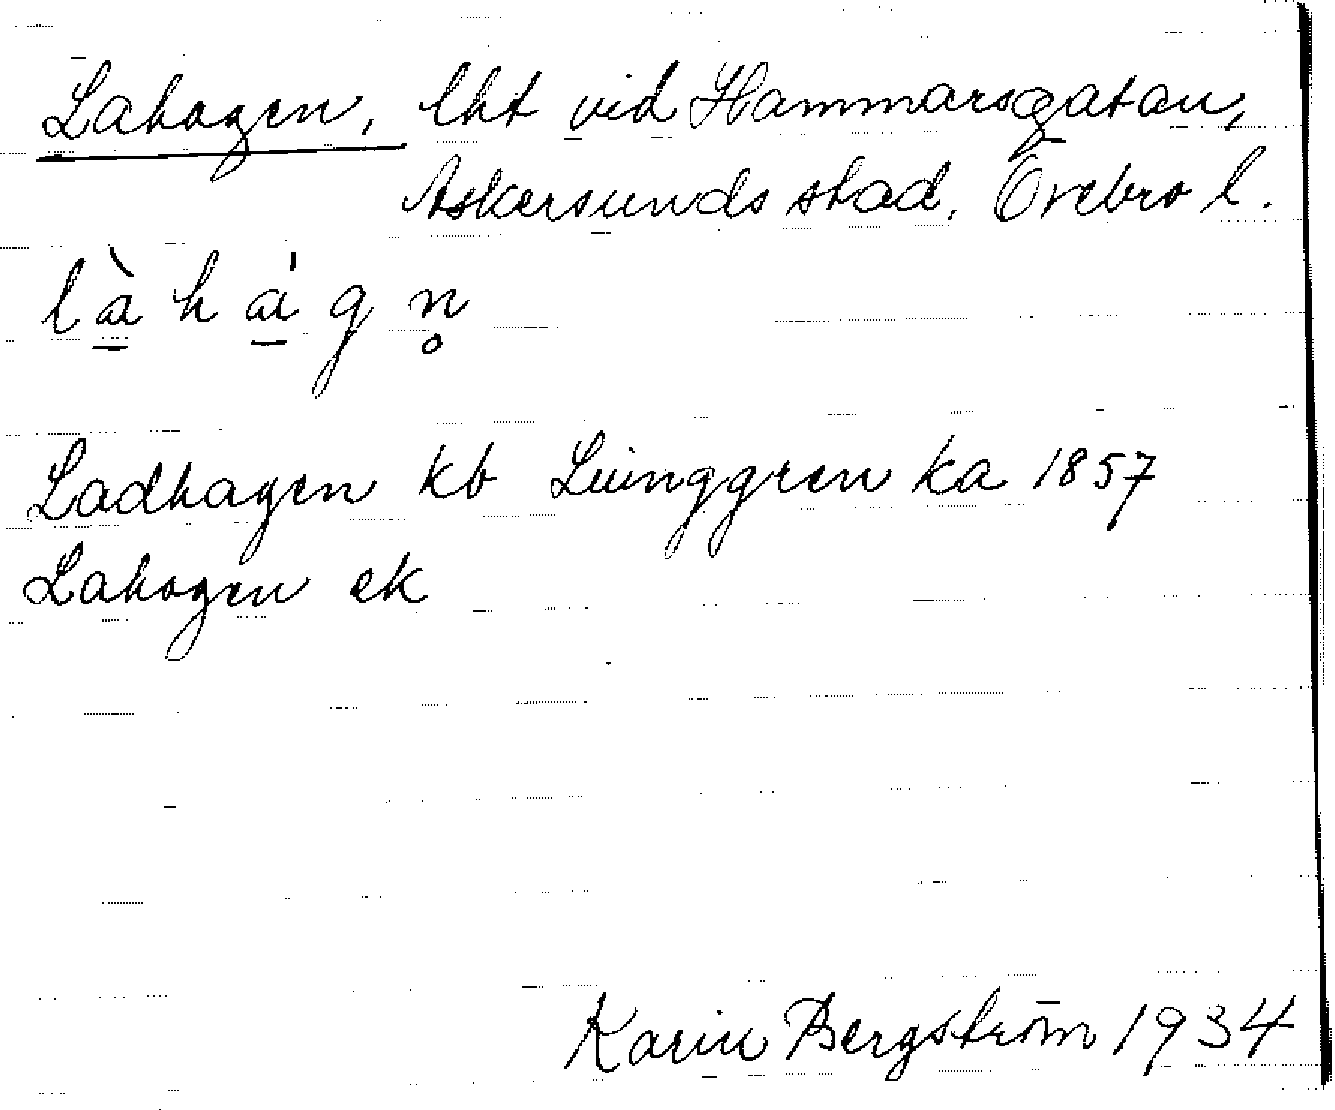 Lahagen, lht vid Hammarsgatan,
Askersunds stad, Örebro l.
là̠há̠gn̥
Ladhagen kb Ljunggren ka 1857
Lahagen ek
Karin Bergström 1934